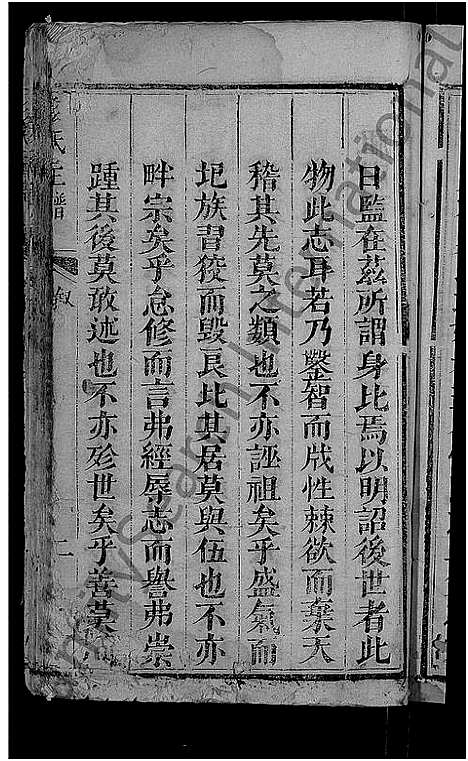 日監在茲所謂身比焉以明詔後世者此
物此志耳若乃鑿智而戕性棘欲而棄天
稽其先莫之類也不亦誣祖矣乎盛氣而
圮族習後而毀良比其居莫與伍也不亦
畔宗矣乎怠修而言弗經辱志而譽弗崇
踵其後莫敢述也不亦殄世矣乎善莫
氏主譜
叙
二
Search International